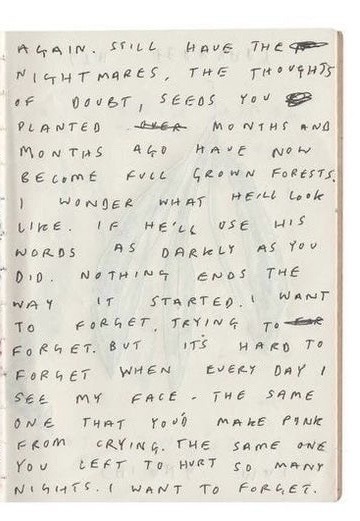 AGAIN. STILL HAVE THE
NIGHTMARES, THE THOUGHTS
OF DOUBT, SEEDS YOU
PLANTED OVER MONTHS AND
MONTHS AGO HAVE NOW
BECOME FULL GROWN FORESTS.
I WONDER WHAT HE'LL LOOK
LIKE. IF HE'LL USE HIS
WORDS AS DARKLY AS YOU
DID. NOTHING ENDS THE
WAY IT STARTED. I WANT
TO FORGET, TRYING TO
FORGET. BUT IT'S HARD TO
FORGET WHEN EVERY DAY I
SEE MY FACE - THE SAME
ONE THAT YOU'D MAKE PINK
FROM CRYING. THE SAME ONE
YOU LEFT TO HURT SO MANY
NIGHTS. I WANT TO FORGET.